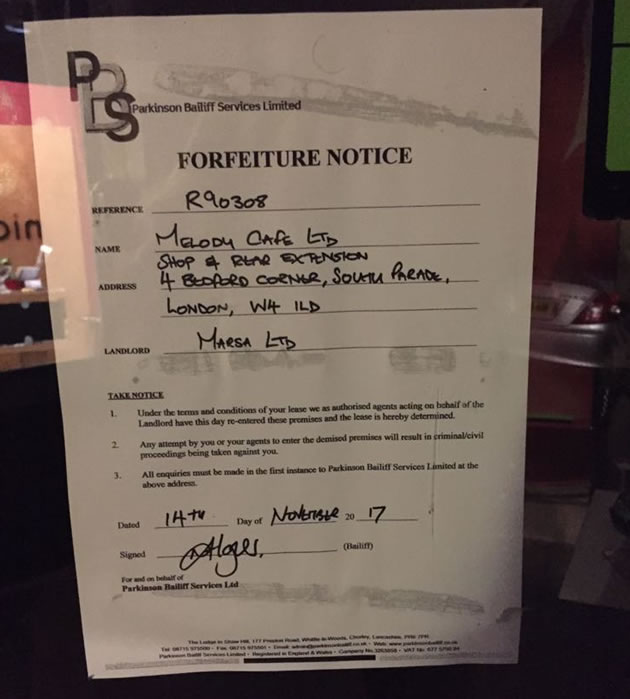 PBS
Parkinson Bailiff Services Limited
FORFEITURE NOTICE
REFERENCE R90308
NAME MELODY CAFE LTD
SHOP & REAR EXTENSION
ADDRESS 4 BEDFORD CORNER, SOUTH PARADE,
LONDON, W4 1LD
LANDLORD MARSA LTD
TAKE NOTICE
1. Under the terms and conditions of your lease we as authorised agents acting on behalf of the
Landlord have this day re-entered these premises and the lease is hereby determined.
2. Any attempt by you or your agents to enter the demised premises will result in criminal/civil
proceedings being taken against you.
3. All enquiries must be made in the first instance to Parkinson Bailiff Services Limited at the
above address.
Dated 14TH Day of NOVEMBER 20 17
Signed (Bailiff)
For and on behalf of
Parkinson Bailiff Services Ltd
The Lodge in Shaw Hill, 177 Preston Road, Whittle-le-Woods, Chorley, Lancashire,
Parkinson Bailiff Services Limited - Registered in England & Wales - Company No.